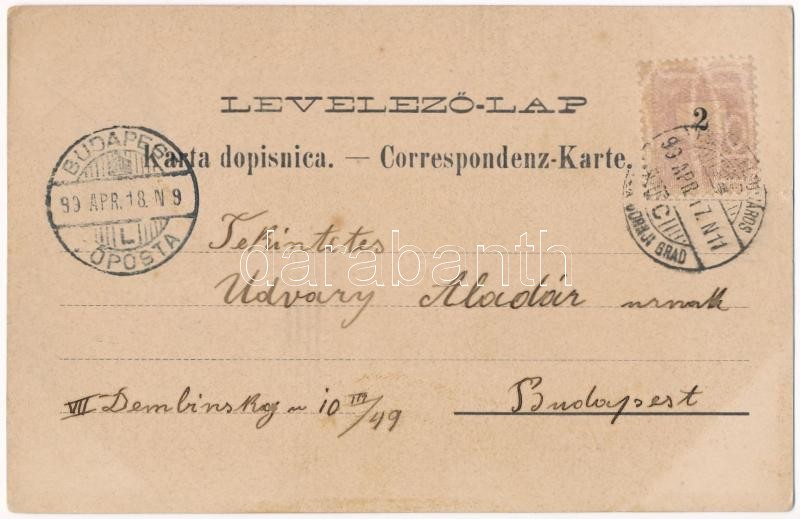 LEVELEZŐ-LAP
Karta dopisnica. — Correspondenz-Karte.
2
BUDAPEST
99 APR. 18. N 9
L
FŐPOSTA
99 APR. 17. N 11
GORNJI GRAD
VÁROS
darabanth
Tekintetes
Udvary Aladár urnak
VII Dembinsky u 10 III/49
Budapest